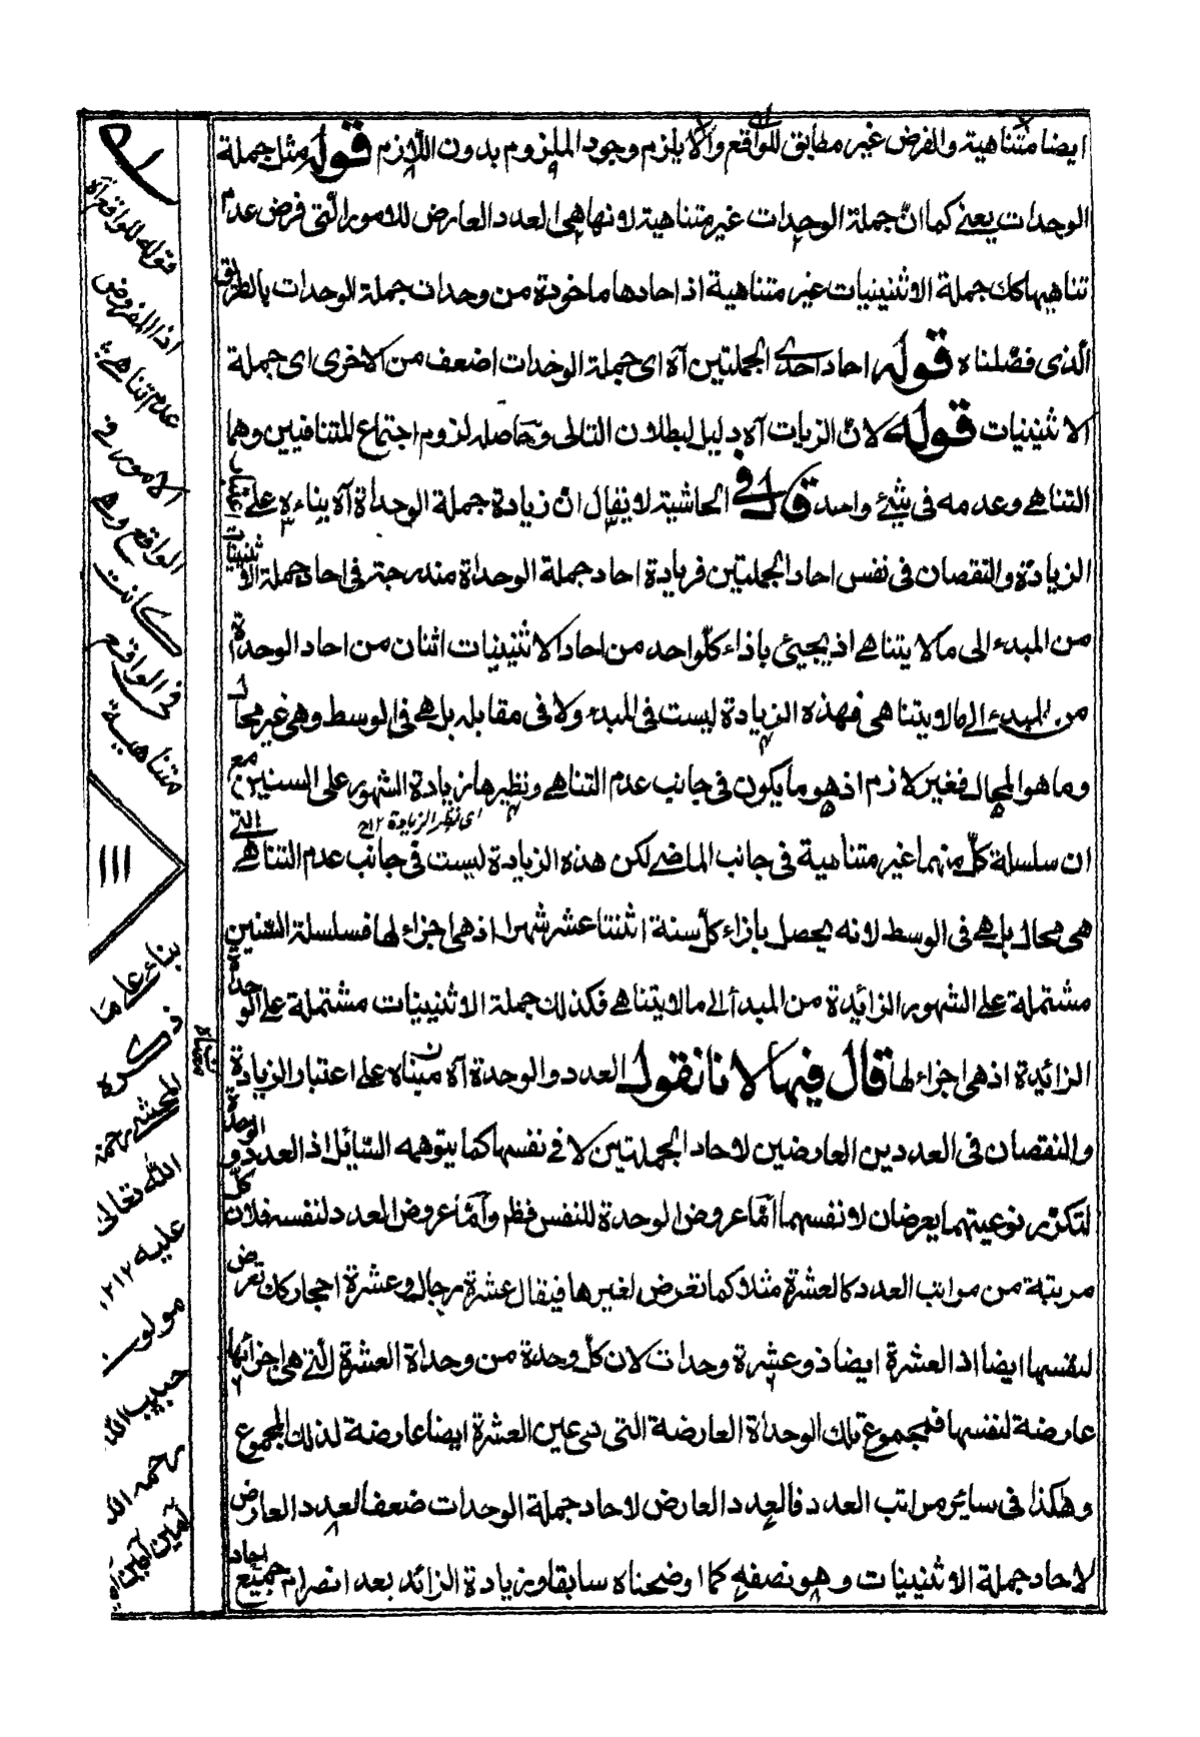 ايضا متناهية والفرض غير مطابق للواقع والا يلزم وجود الملزوم بدون اللازم قوله مثل جملة
الوحدات يعنى كما ان جملة الوحدات غير متناهية لانها هى العدد العارض للامور التى فرض عدم
تناهيها كك جملة الاثنينيات غير متناهية اذ احادها ماخوذة من وحدات جملة الوحدات بالطريق
الذى فصلناه قوله احاد احدى الجملتين آه اى جملة الوحدات اضعف من الاخرى اى جملة
الاثنينيات قوله لان الزيات آه دليل لبطلان التالى وحاصله لزوم اجتماع المتنافيين وهما
التناهى وعدمه فى شئ واحد قال فى الحاشية لا يقال ان زيادة جملة الوحداة آه بناءه على اعتبار
الزيادة والنقصان فى نفس احاد الجملتين فزيادة احاد جملة الوحداة مندرجة فى احاد جملة الاثنينيات
من المبدء الى ما لا يتناهى اذ يجيئ باذاء كل واحد من احاد الاثنينيات اثنان من احاد الوحداة
من المبدء الى ما لا يتناهى فهذه الزيادة ليست فى المبدء ولا فى مقابله بل هى فى الوسط وهى غير محال
وما هو المحال فغير لازم اذ هو ما يكون فى جانب عدم التناهى ونظيرها زيادة الشهور على السنين مع
اى نظر الزيادة ١٢
ان سلسلة كل منهما غير متناهية فى جانب الماضى لكن هذه الزيادة ليست فى جانب عدم التناهى التى
هى محال بل هى فى الوسط لانه يحصل بازاء كل سنة اثنتا عشر شهرا اذ هى اجزاء لها فسلسلة السنين
مشتملة على الشهور الزائدة من المبدأ الى ما لا يتناهى فكذلك جملة الاثنينيات مشتملة على الوحداة
الزائدة اذ هى اجزاء لها قال فيها لانا نقول العدد والوحدة آه مبناه على اعتبار الزيادة
والنقصان فى العددين العارضين لاحاد الجملتين لا فى نفسها كما يتوهمه السائل اذ العدد والوحدة
لتكرر نوعيتهما يعرضان لانفسهما اما عروض الوحدة للنفس فظم وأما عروض العدد لنفسه فلان كل
مرتبة من مراتب العدد كالعشرة مثلا كما تعرض لغيرها فيقال عشرة رجال وعشرة احجار كك تعرض
لنفسها ايضا اذ العشرة ايضا ذو عشرة وحدات لان كل وحدة من وحداة العشرة التى هى اجزائها
عارضة لنفسها فمجموع تلك الوحداة العارضة التى هى عين العشرة ايضا عارضة لذلك المجموع
وهكذا فى سائر مراتب العدد فالعدد العارض لاحاد جملة الوحدات ضعف العدد العارض
لاحاد جملة الاثنينيات وهو نصفه كما اوضحناه سابقا وزيادة الزائد بعد انصرام جميع احاد
قوله للواقع آه
اذا المفروض
عدم تناهى
الامور فى
الواقع
كانت
فى الواقع
متناهية
١١١
بناء على ما
ذكره
المحشى رحمة
الله تعالى
عليه ١٢
مولوى
حبيب الله
رحمه الله
آمين آمين